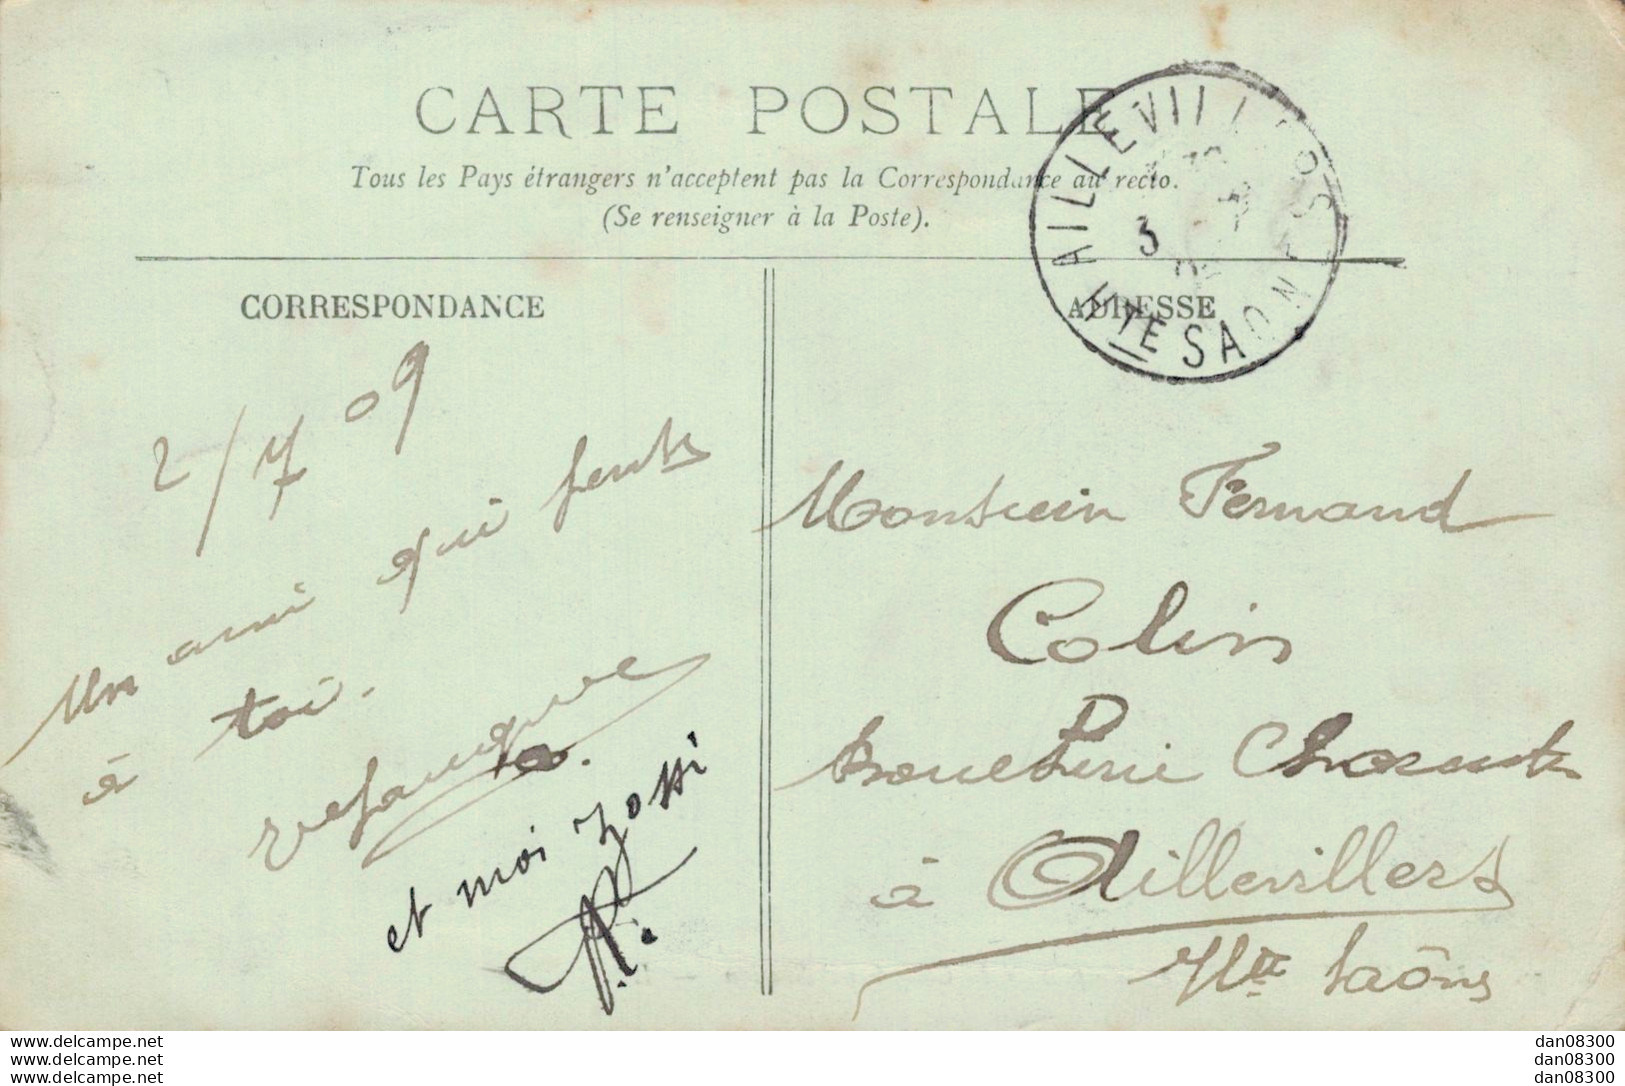 CARTE POSTALE
Tous les Pays étrangers n'acceptent pas la Correspondance au recto.
(Se renseigner à la Poste).
AILLEVILLERS
3
HTE SAONE
CORRESPONDANCE
ADRESSE
2/7 09
Un ami qui pense
à toi.
et moi
Monsieur Fernand
Colin
Boucherie
à Aillevillers
Hte Saône
www.delcampe.net
www.delcampe.net
www.delcampe.net
dan08300
dan08300
dan08300